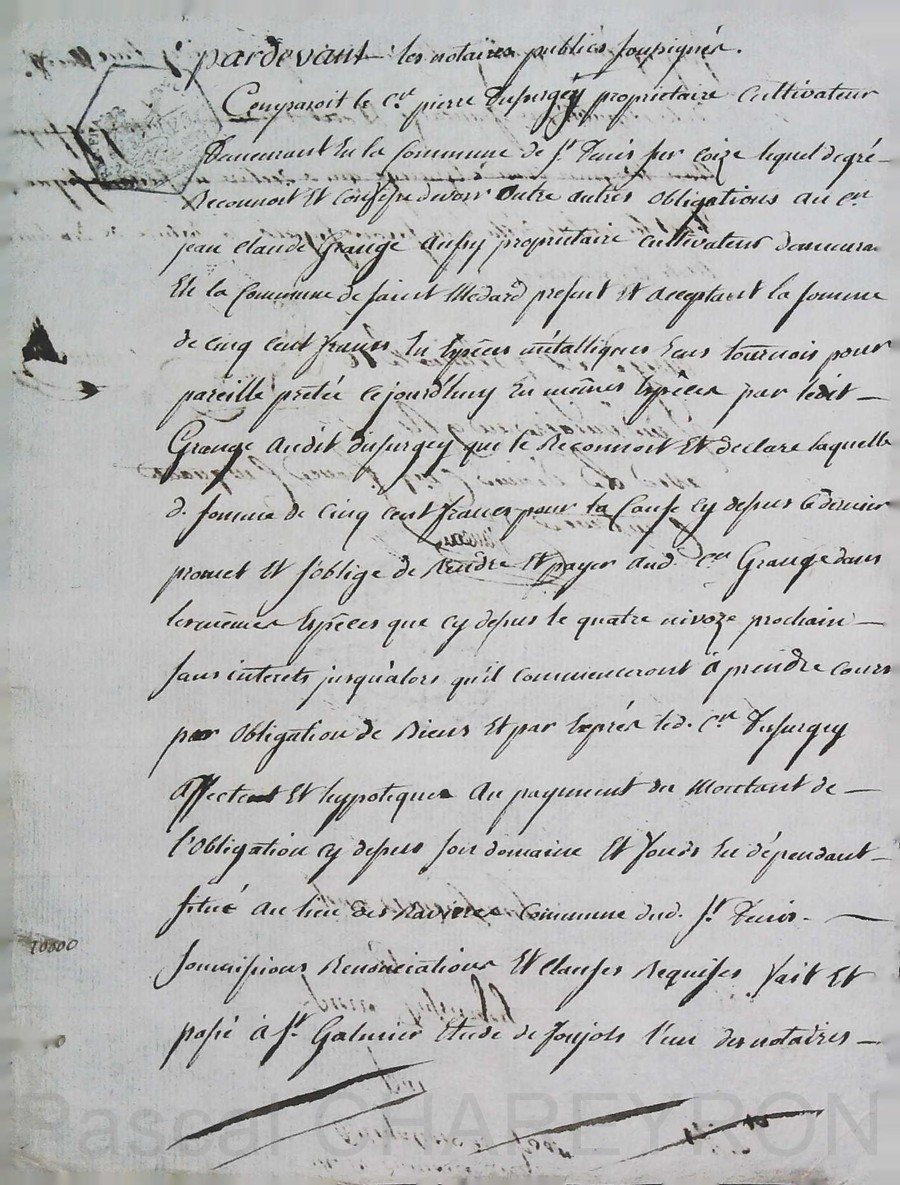 pardevant les notaires publics soussignés.
Comparoit le Cen pierre Dusurgey propriétaire cultivateur
Demeurant En la Commune de St. Denis sur Coize lequel degré
Reconnoit Et Confesse devoir outre autres obligations au Cen
jean Claude Grange aussy propriétaire cultivateur demeurant
En la Commune de saint Medard present Et acceptant la somme
de cinq cent francs En Espèces métalliques sous tournois pour
pareille pretée cejourd'huy En mêmes Espèces par ledit
Grange audit Dusurgey que le Reconnoit Et declare laquelle
d. somme de cinq cent francs pour la Cause cy depus ce dernier
promet Et s'oblige de Rendre Et payer aud. Cen Grange dans
les mêmes Espèces que cy depus le quatre nivoze prochain
sans interets jusqu'alors qu'il commenceront à prendre cours
par obligation de Biens Et par Exprés led. Cen Dusurgey
affecte Et hypoteque au payement du Montant de
l'obligation cy depus son domaine Et fonds En dépendant
situé au lieu des Commune dud. St. Denis
soumissions Renonciations Et clauses Requises fait Et
passé à St. Galmier Etude de l'un des notaires
10000
Pascal CHAPEYRON